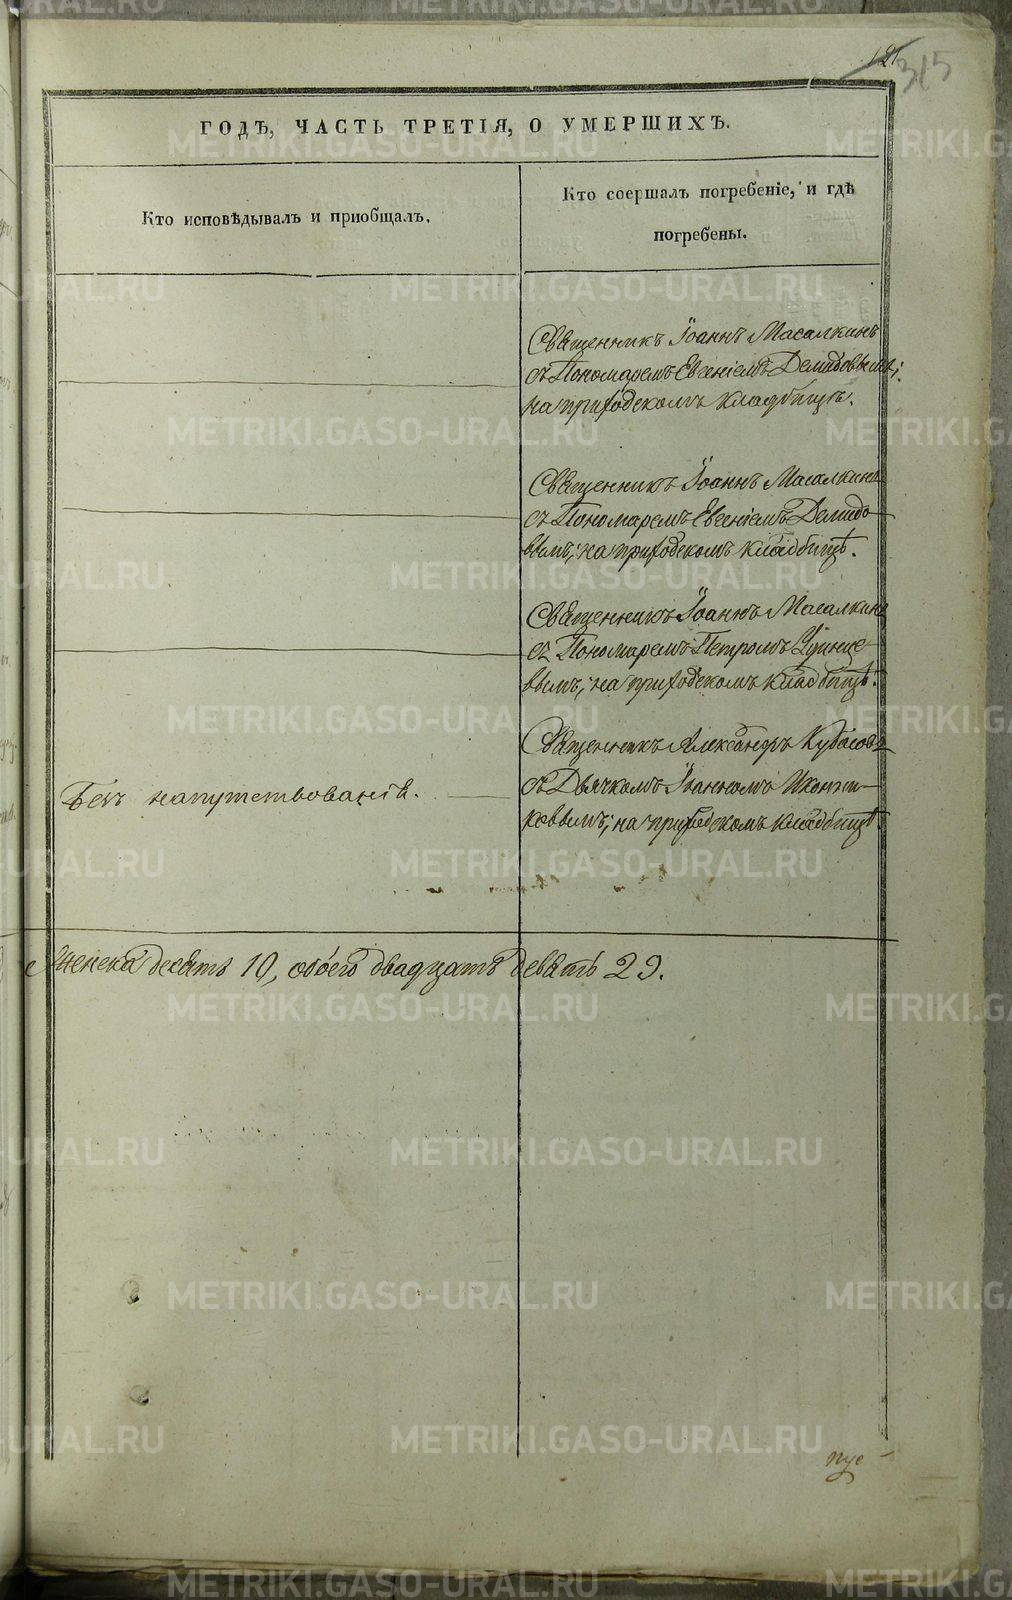 315
ГОДѢ, ЧАСТЬ ТРЕТІЯ, О УМЕРШИХЪ.
Кто исповѣдывалъ и приобщалъ.
Кто соершалъ погребеніе, и гдѣ
погребены.
Священникъ Іоаннъ Масалкинъ
съ Пономаремъ Евгеніемъ Демидовымъ;
на приходскомъ кладбищѣ.
Священникъ Іоаннъ Масалкинъ
съ Пономаремъ Евгеніемъ Демидо-
вымъ; на приходскомъ кладбищѣ.
Священникъ Іоаннъ Масалкинъ
съ Пономаремъ Петромъ Удинце-
вымъ; на приходскомъ кладбищѣ.
Безъ напутствованія.
Священникъ Александръ Кубасовъ
съ Дьячкомъ Іоанномъ Иконни-
ковымъ; на приходскомъ кладбищѣ.
Женска десять 10, обоего двадцать девять 29.
METRIKI.GASO-URAL.RU